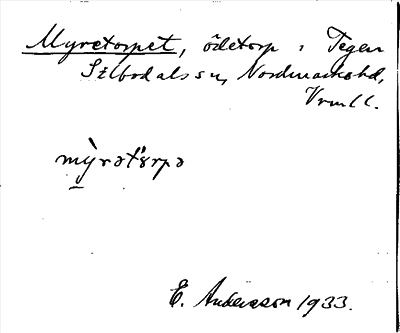 Myretorpet, ödetorp i Tegen
Silbodals sn, Nordmarks hd,
Vrml.
mỳrətɵrpə
E. Andersson 1933.